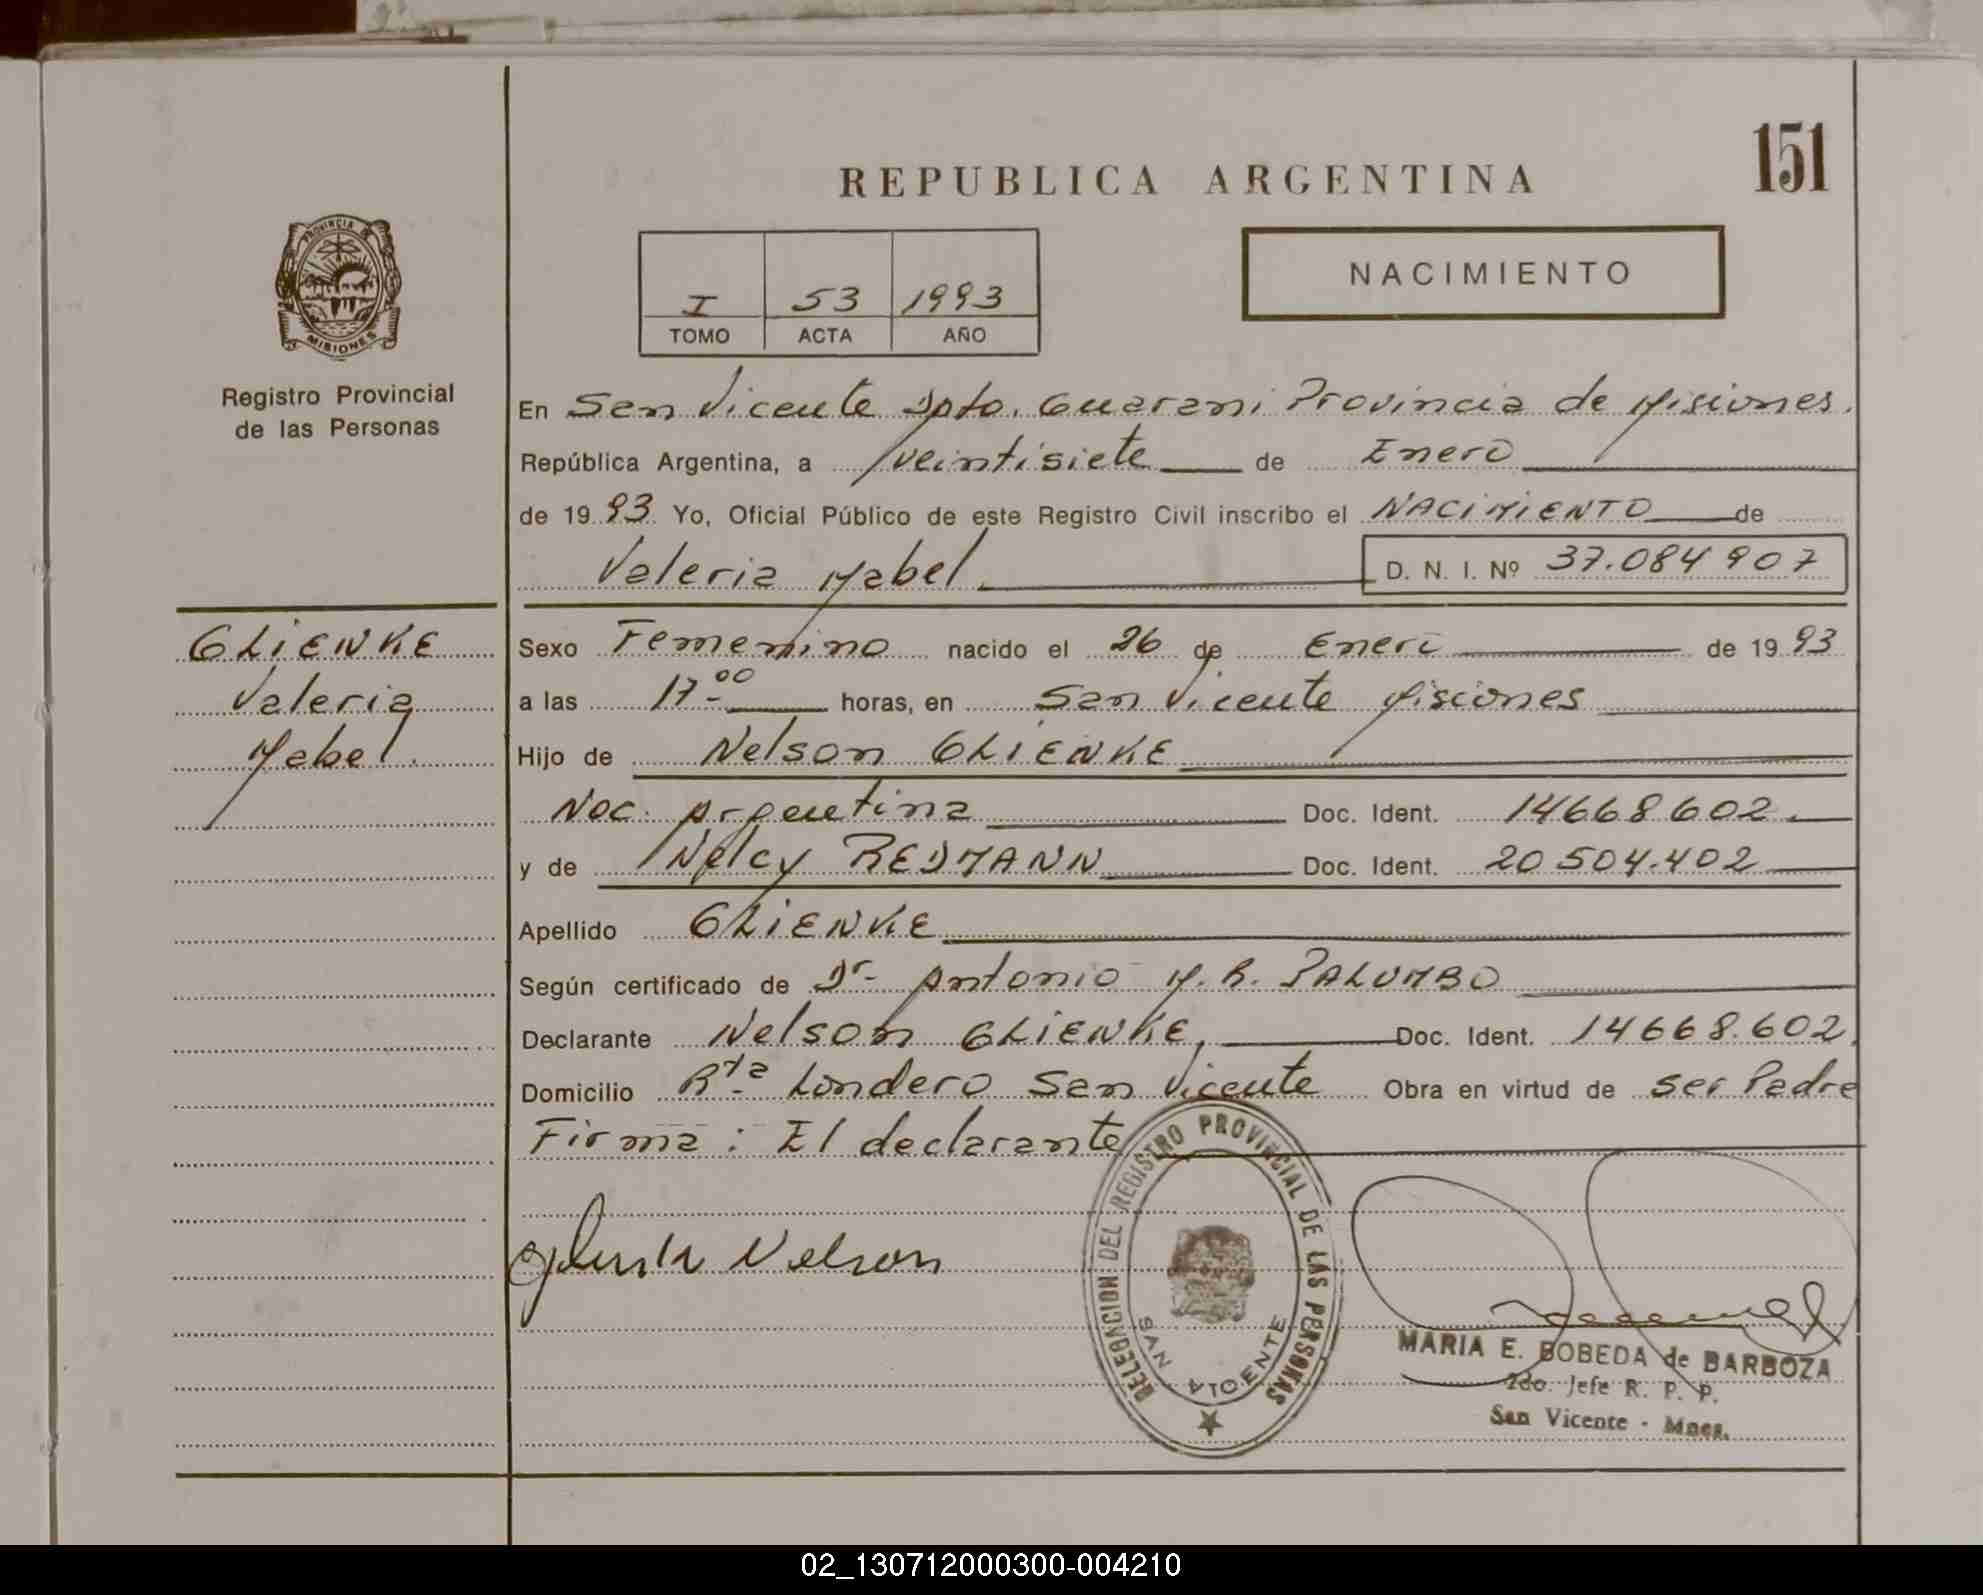 151
REPUBLICA ARGENTINA
NACIMIENTO
I 53 1993
TOMO ACTA AÑO
PROVINCIA DE
MISIONES
Registro Provincial
de las Personas
En San Vicente Dpto. Guarani Provincia de Misiones.
República Argentina, a veintisiete de Enero
de 1993 Yo, Oficial Público de este Registro Civil inscribo el NACIMIENTO de
Valeria Mabel D. N. I. Nº 37.084907
GLIENKE
Valeria
Mabel.
Sexo Femenino nacido el 26 de Enero de 1993
a las 17-00 horas, en San Vicente Misiones
Hijo de Nelson GLIENKE
Nac. Argentina Doc. Ident. 14668.602.
y de Nelcy REDMANN Doc. Ident. 20504.402
Apellido GLIENKE
Según certificado de Dr- Antonio M. R. PALUMBO
Declarante Nelson GLIENKE, Doc. Ident. 14668.602.
Domicilio Rta Londero San Vicente Obra en virtud de ser Padre
Firma: El declarante
Nelson
DELEGACION DEL REGISTRO PROVINCIAL DE LAS PERSONAS
SAN VICENTE
MARIA E. BOBEDA de BARBOZA
2do. Jefe R. P. P.
San Vicente - Mnes.
02_130712000300-004210